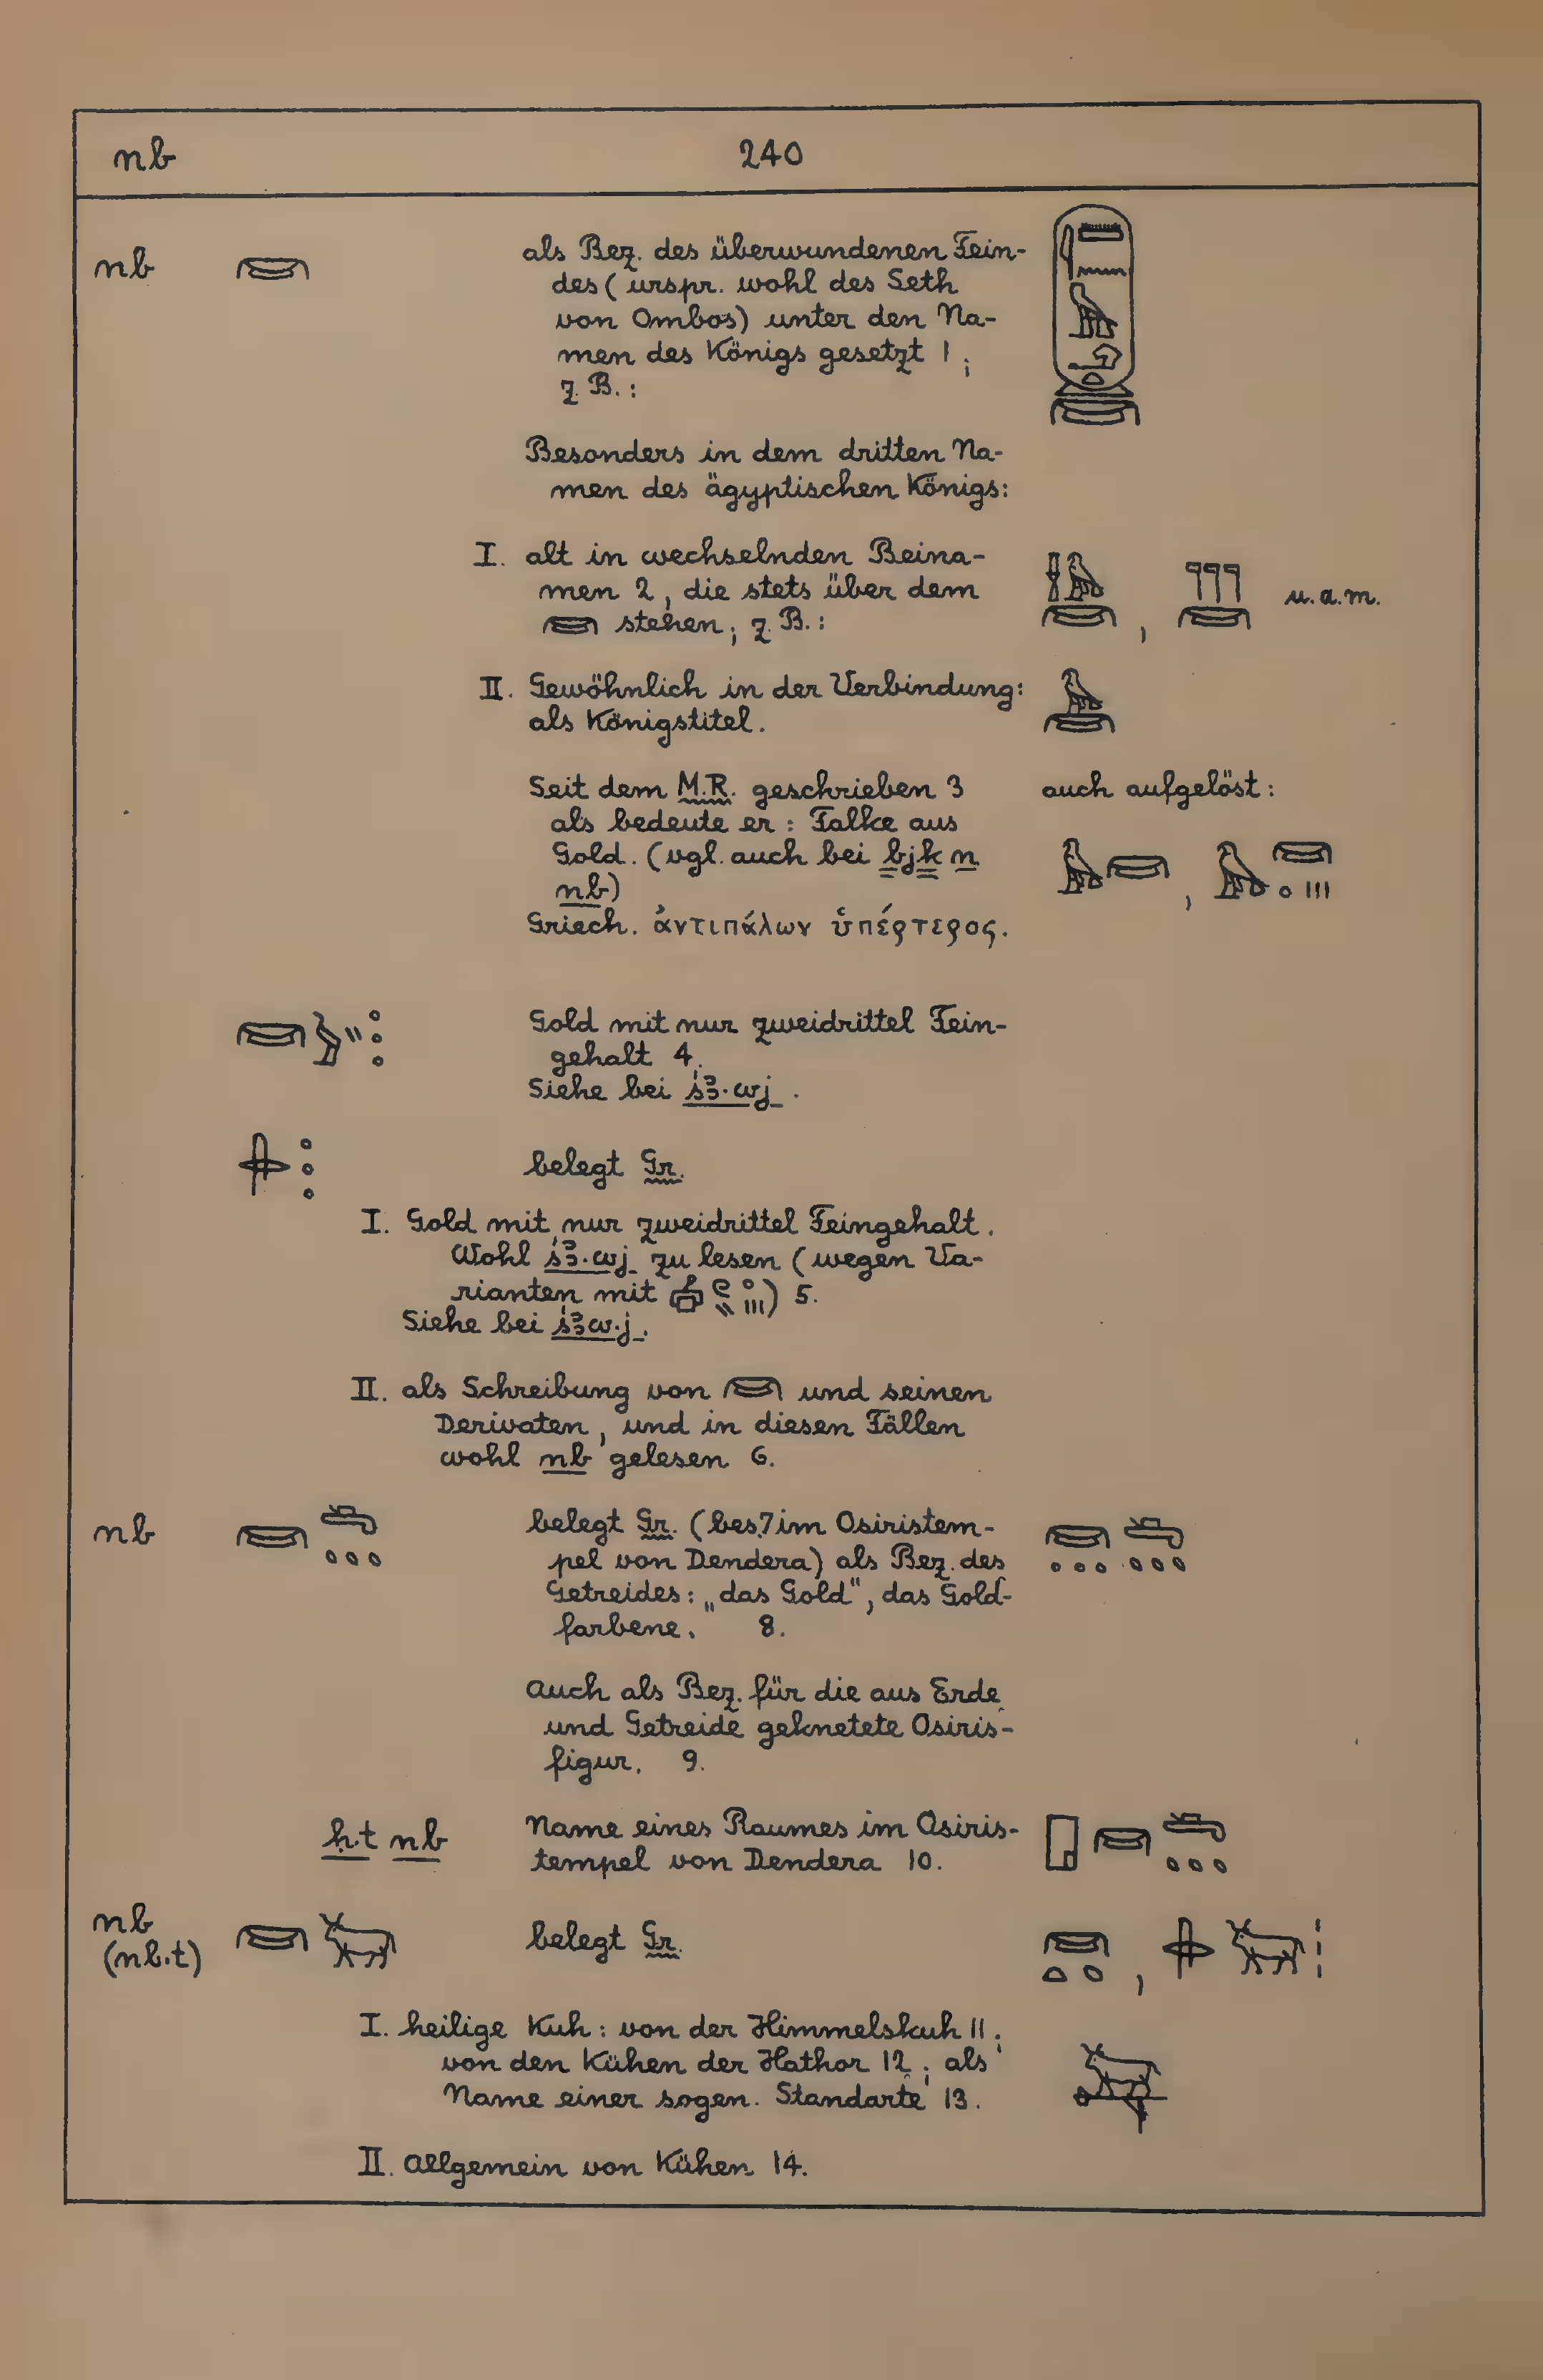 nb 240
nb 𓋞 als Bez. des überwundenen Fein-
des (urspr. wohl des Seth
von Ombos) unter den Na-
men des Königs gesetzt 1;
z. B.:
Besonders in dem dritten Na-
men des ägyptischen Königs:
I. alt in wechselnden Beina-
men 2, die stets über dem
𓋞 stehen; z. B.: , u.a.m.
II. Gewöhnlich in der Verbindung:
als Königstitel.
Seit dem M.R. geschrieben 3 auch aufgelöst:
als bedeute er: Falke aus
Gold. (vgl. auch bei bjk n
nb)
Griech. ἀντιπάλων ὑπέρτερος.
Gold mit nur zweidrittel Fein-
gehalt 4.
Siehe bei śꜣ·wj.
belegt Gr.
I. Gold mit nur zweidrittel Feingehalt.
Wohl śꜣ·wj zu lesen (wegen Va-
rianten mit ) 5.
Siehe bei śꜣw·j.
II. als Schreibung von 𓋞 und seinen
Derivaten, und in diesen Fällen
wohl nb gelesen 6.
nb belegt Gr. (bes. 7 im Osiristem-
pel von Dendera) als Bez. des
Getreides: „das Gold", das Gold-
farbene. 8.
Auch als Bez. für die aus Erde
und Getreide geknetete Osiris-
figur. 9.
ḥ.t nb Name eines Raumes im Osiris-
tempel von Dendera 10.
nb
(nb.t) belegt Gr.
I. heilige Kuh: von der Himmelskuh 11;
von den Kühen der Hathor 12; als
Name einer sogen. Standarte 13.
II. Allgemein von Kühen 14.